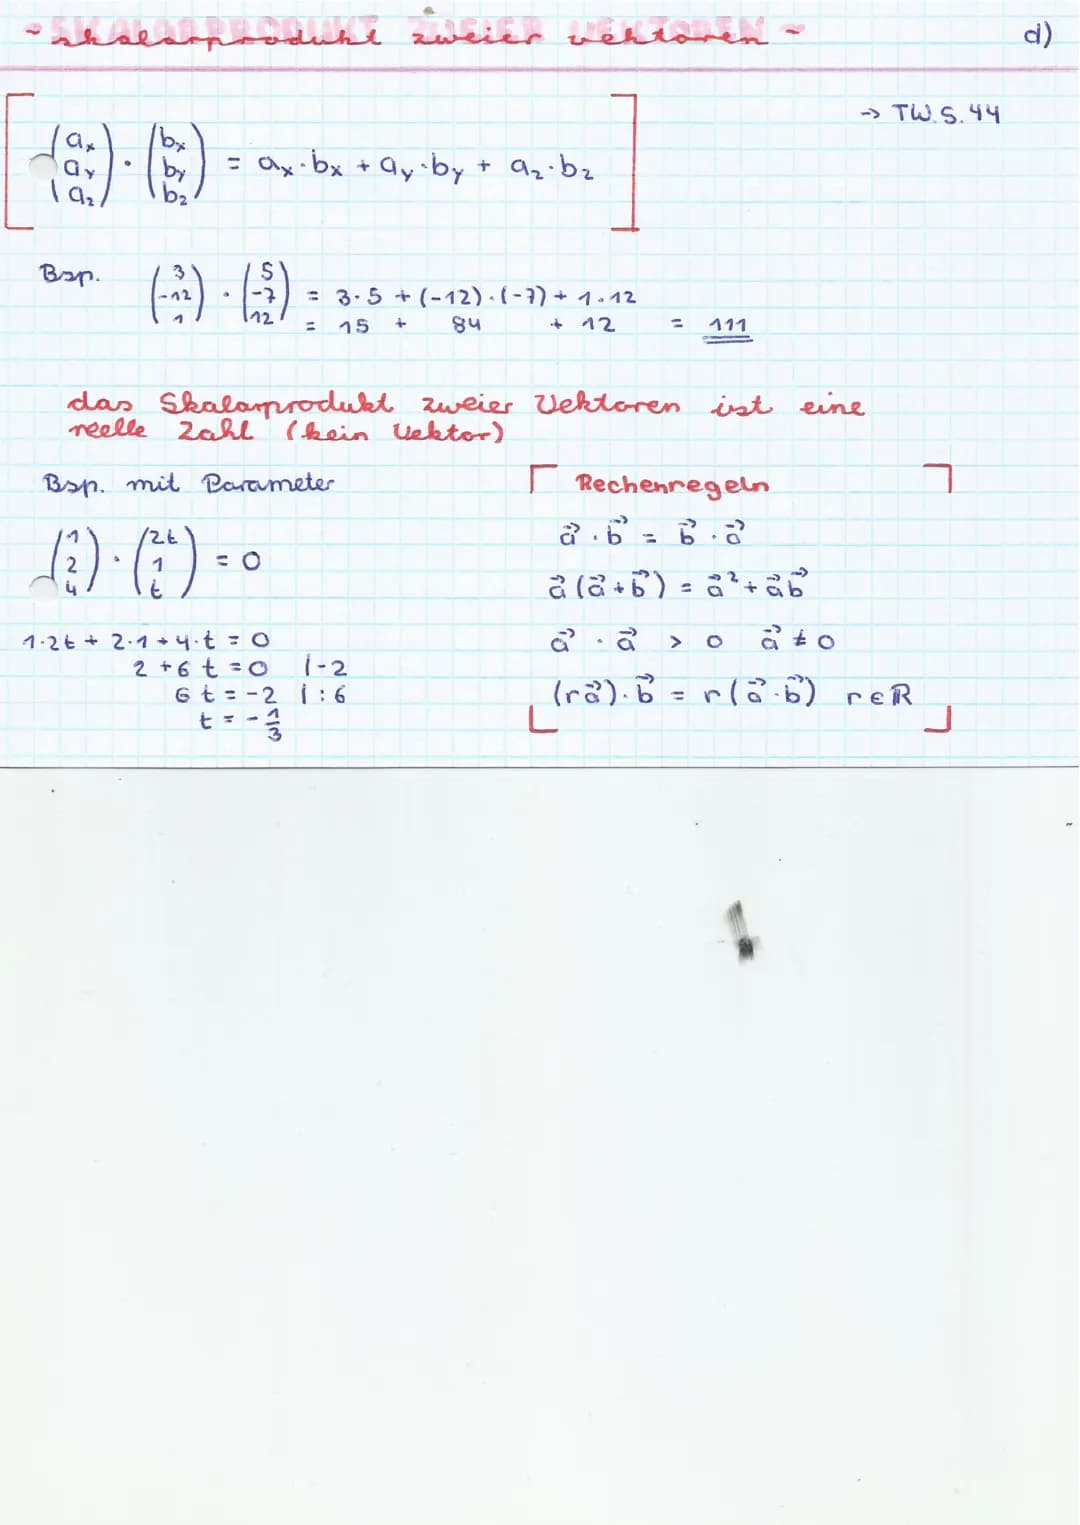 - Skalarprodukt zweier Vektoren -
d)
-> TW. S. 44
(ax ay az) · (bx by bz) = ax·bx + ay·by + az·bz
Bsp. (3 -12 1) · (5 -7 12) = 3·5 + (-12)·(-7) + 1·12
= 15 + 84 + 12 = 111
das Skalarprodukt zweier Vektoren ist eine
reelle Zahl (kein Vektor)
Bsp. mit Parameter
(1 2 4) · (2t 1 t) = 0
1·2t + 2·1 + 4·t = 0
2 + 6t = 0 |-2
6t = -2 |:6
t = -1/3
Rechenregeln
a⃗ · b⃗ = b⃗ · a⃗
a⃗(a⃗+b⃗) = a⃗² + a⃗b⃗
a⃗ · a⃗ > 0 a⃗ ≠ 0
(ra⃗)·b⃗ = r(a⃗·b⃗) r∈ℝ